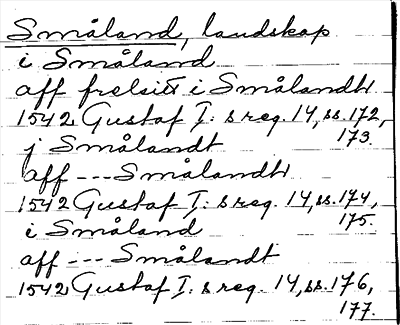 Småland, landskap
i Småland
aff frelsit i Smålandh
1542 Gustaf I: s reg. 14, ss. 172,
173.
j Smålandt
aff --- Smålandh
1542 Gustaf I: s reg. 14, ss. 174,
175.
i Småland
aff --- Smålandt
1542 Gustaf I: s reg. 14, ss. 176,
177.